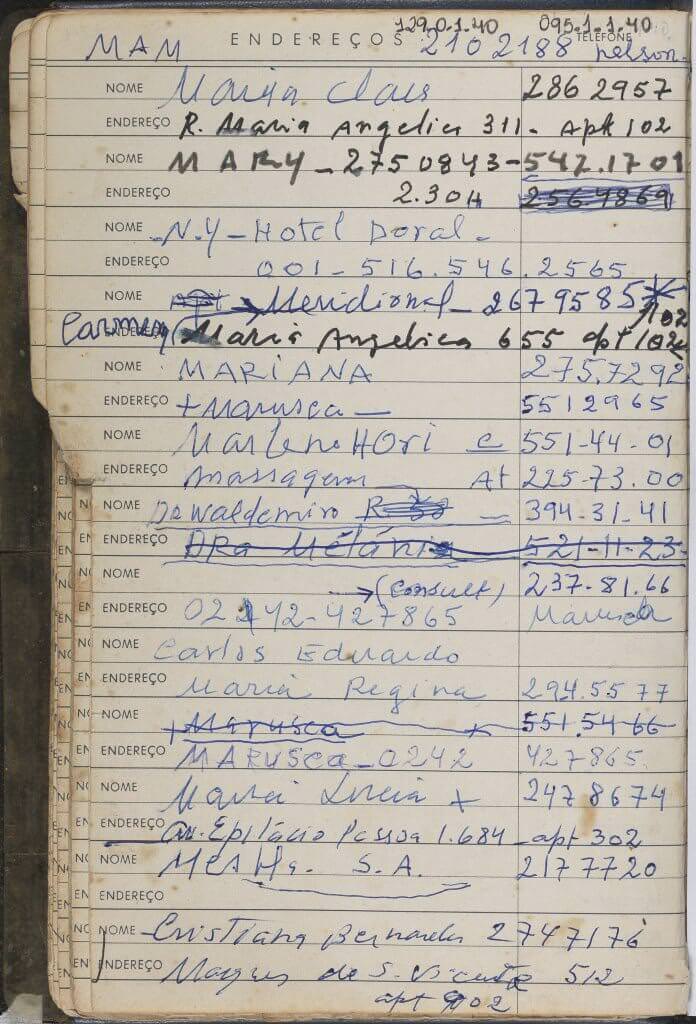 129.0.1.40 095.1.1.40
ENDEREÇOS TELEFONE
MAM 210 2188 nelson
NOME Maria Clara 286 2957
ENDEREÇO R. Maria Angelica 311 - Apt 102
NOME MARY - 2750843 - 542.1701
ENDEREÇO 2.30H 2564869
NOME N.Y - Hotel Doral -
ENDEREÇO 001 - 516.546.2565
NOME Apt → Meridional - 2679585
102
Carmen (Maria Angelica 655 apt 102
NOME MARIANA 275.7292
ENDEREÇO + Marusca - 551 2965
NOME Marlene HORI e 551-44-01
ENDEREÇO massagem At 225-73.00
NOME Dr Waldemiro 394-31-41
ENDEREÇO DRa Mélánie 521-11-23-
NOME → (Consult) 237-81.66
ENDEREÇO 0242-427865 Marusca
NOME Carlos Eduardo
ENDEREÇO Maria Regina 294.55 77
NOME + Marusca x 551.54-66
ENDEREÇO MARUSCA - 0242 427865.
NOME Maria Lucia + 247 8674
ENDEREÇO Av. Epitácio Pessoa 1.684 - apt 302
NOME MESHa. S.A. 217 7720
ENDEREÇO
NOME Cristiana Bernardes 2747176
ENDEREÇO Marques de S. Vicente 512
apt 902